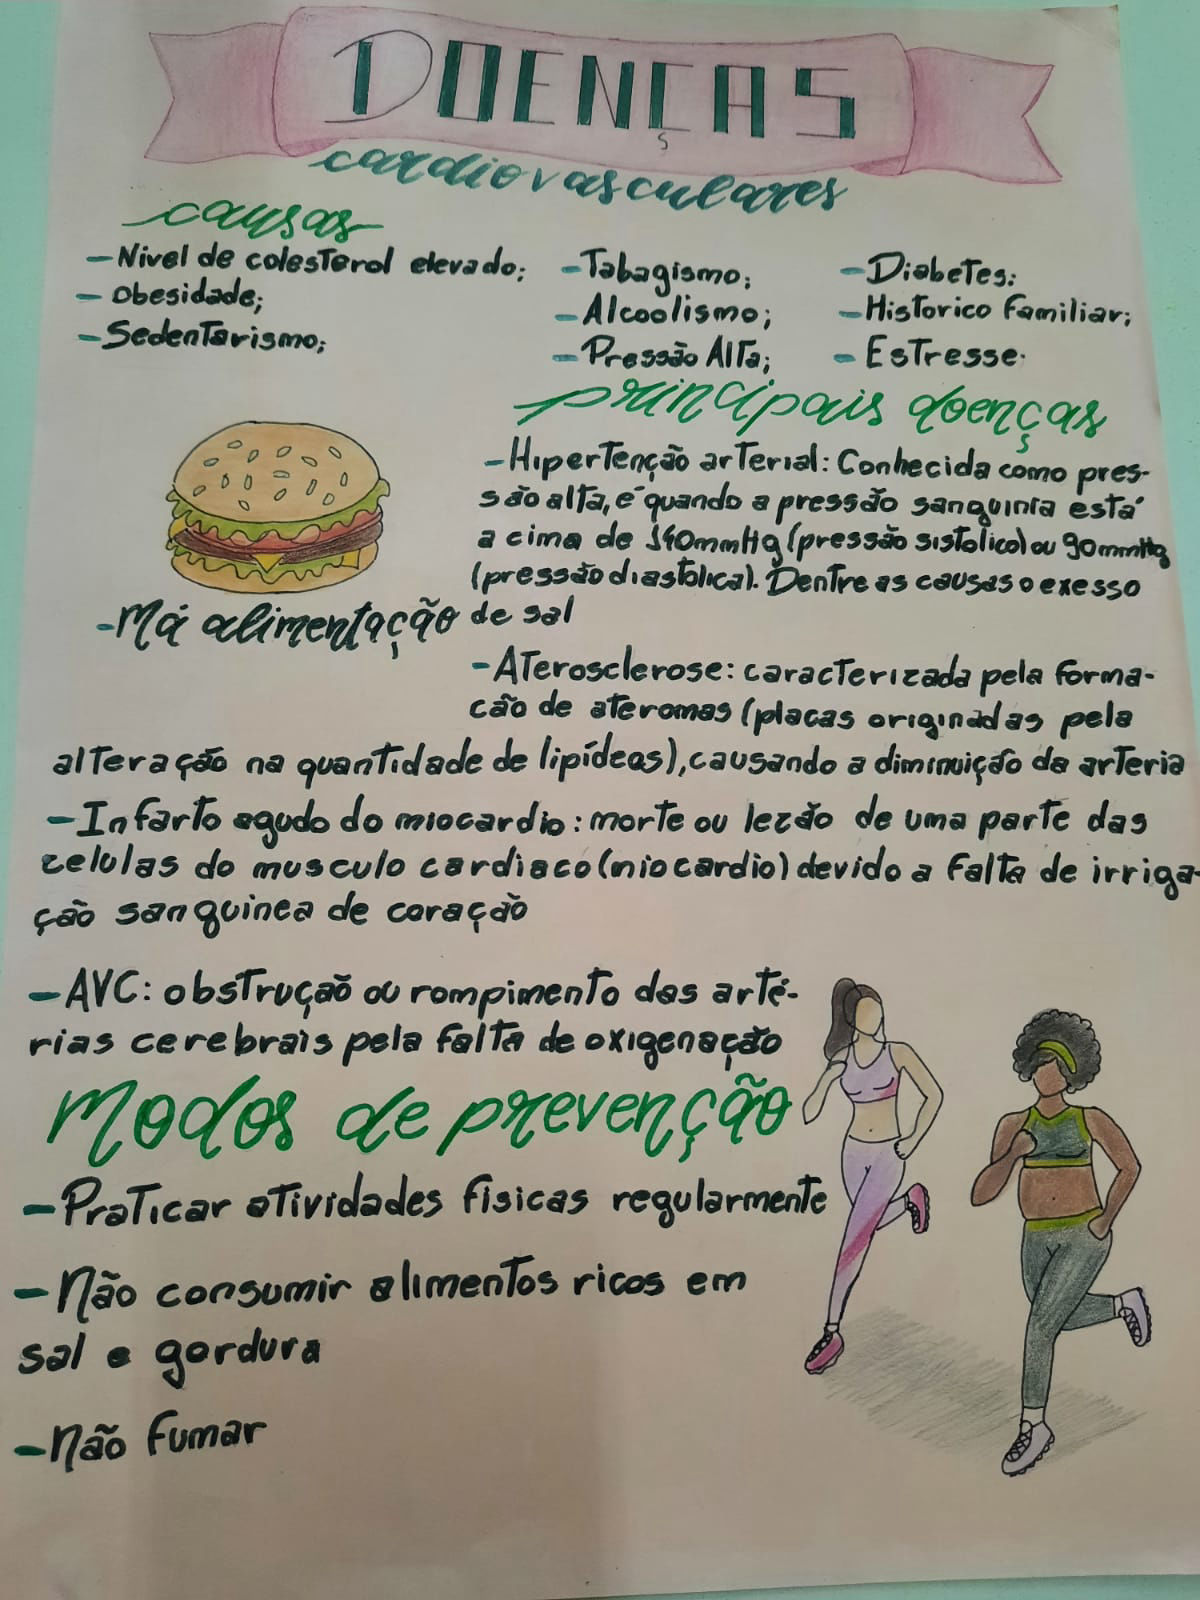 DOENÇAS
cardiovasculares
causas
- Nivel de colesterol elevado;
- Obesidade;
- Sedentarismo;
- Tabagismo;
- Alcoolismo;
- Pressão Alta;
- Diabetes;
- Historico Familiar;
- Estresse.
principais doenças
- Hipertenção arterial: Conhecida como pres-
são alta, é quando a pressão sanguinia está
a cima de 140mmHg (pressão sistolico) ou 90mmHg
(pressão diastolica). Dentre as causas o exesso
de sal
- Má alimentação
- Aterosclerose: caracterizada pela forma-
cão de ateromas (placas originadas pela
alteração na quantidade de lipídeos), causando a diminuição da arteria
- Infarto agudo do miocardio: morte ou lezão de uma parte das
celulas do musculo cardiaco (miocardio) devido a falta de irriga-
ção sanguinea de coração
- AVC: obstrução ou rompimento das arté-
rias cerebrais pela falta de oxigenação
Modos de prevenção
- Praticar atividades fisicas regularmente
- Não consumir alimentos ricos em
sal e gordura
- Não fumar